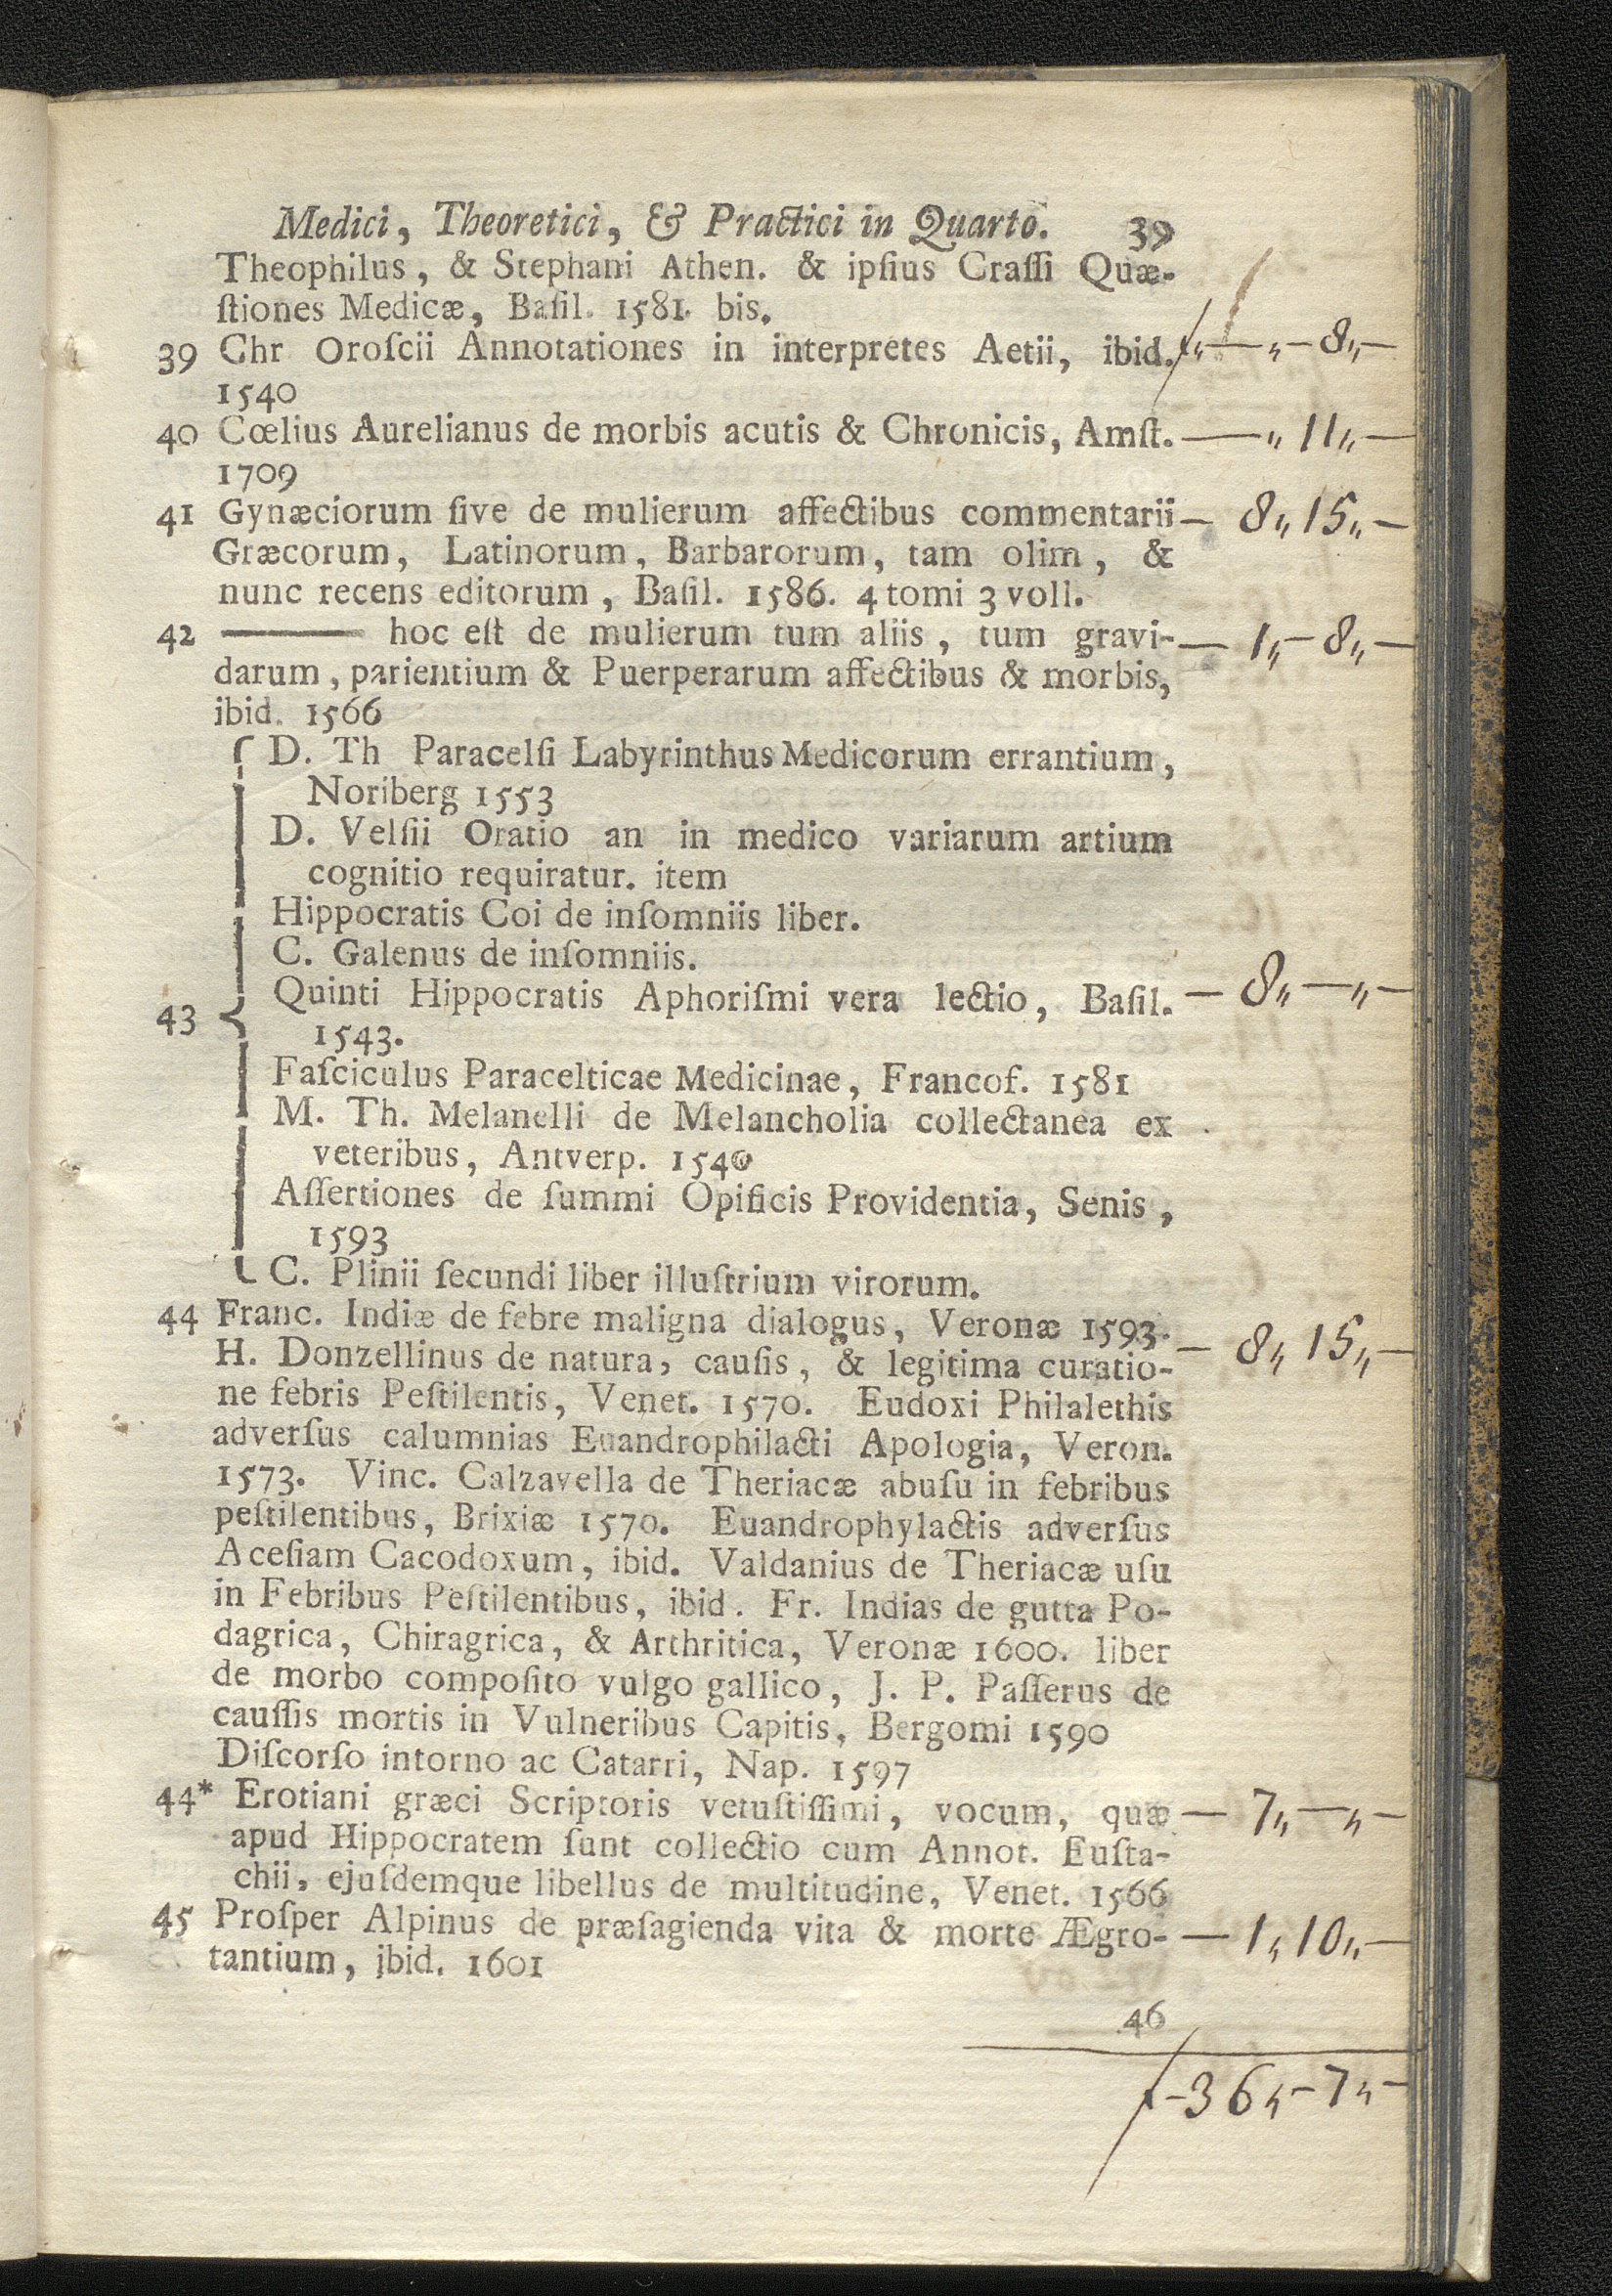 Medici, Theoretici, & Practici in Quarto. 39
Theophilus, & Stephani Athen. & ipſius Craſſi Quæ-
ſtiones Medicæ, Baſil. 1581. bis.
39 Chr Oroſcii Annotationes in interpretes Aetii, ibid. ƒ„—„—8„—
1540
40 Cœlius Aurelianus de morbis acutis & Chronicis, Amſt. —„11„—
1709
41 Gynæciorum ſive de mulierum affectibus commentarii — 8„15„—
Græcorum, Latinorum, Barbarorum, tam olim, &
nunc recens editorum, Baſil. 1586. 4 tomi 3 voll.
42 ——— hoc eſt de mulierum tum aliis, tum gravi- — 1„—8„—
darum, parientium & Puerperarum affectibus & morbis,
ibid. 1566
D. Th Paracelſi Labyrinthus Medicorum errantium,
Noriberg 1553
D. Velſii Oratio an in medico variarum artium
cognitio requiratur. item
Hippocratis Coi de inſomniis liber.
C. Galenus de inſomniis.
43 Quinti Hippocratis Aphoriſmi vera lectio, Baſil. — 8„—„—
1543.
Faſciculus Paracelticae Medicinae, Francof. 1581
M. Th. Melanelli de Melancholia collectanea ex
veteribus, Antverp. 1540
Aſſertiones de ſummi Opificis Providentia, Senis,
1593
C. Plinii ſecundi liber illuſtrium virorum.
44 Franc. Indiæ de febre maligna dialogus, Veronæ 1593.
H. Donzellinus de natura, cauſis, & legitima curatio- — 8„15„—
ne febris Peſtilentis, Venet. 1570. Eudoxi Philalethis
adverſus calumnias Euandrophilacti Apologia, Veron.
1573. Vinc. Calzavella de Theriacæ abuſu in febribus
peſtilentibus, Brixiæ 1570. Euandrophylactis adverſus
Aceſiam Cacodoxum, ibid. Valdanius de Theriacæ uſu
in Febribus Peſtilentibus, ibid. Fr. Indias de gutta Po-
dagrica, Chiragrica, & Arthritica, Veronæ 1600. liber
de morbo compoſito vulgo gallico, J. P. Paſſerus de
cauſſis mortis in Vulneribus Capitis, Bergomi 1590
Diſcorſo intorno ac Catarri, Nap. 1597
44* Erotiani græci Scriptoris vetuſtiſſimi, vocum, quæ — 7„—„—
apud Hippocratem ſunt collectio cum Annot. Euſta-
chii, ejuſdemque libellus de multitudine, Venet. 1566
45 Proſper Alpinus de præſagienda vita & morte Ægro- — 1„10„—
tantium, jbid. 1601
46
ƒ—36„—7„—